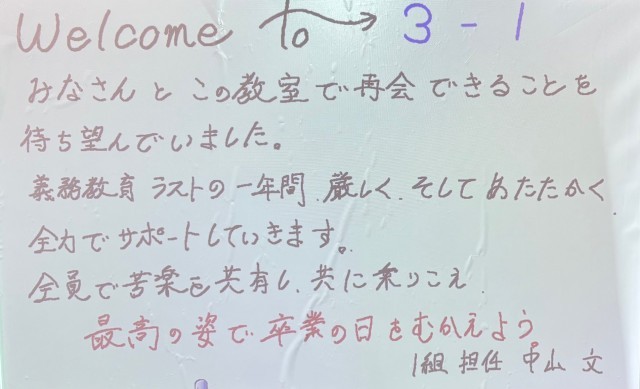 Welcome to → 3-1
みなさんとこの教室で再会できることを
待ち望んでいました。
義務教育ラストの一年間、厳しく、そしてあたたかく
全力でサポートしていきます。
全員で苦楽を共有し、共に乗りこえ、
最高の姿で卒業の日をむかえよう
1組 担任 中山 文